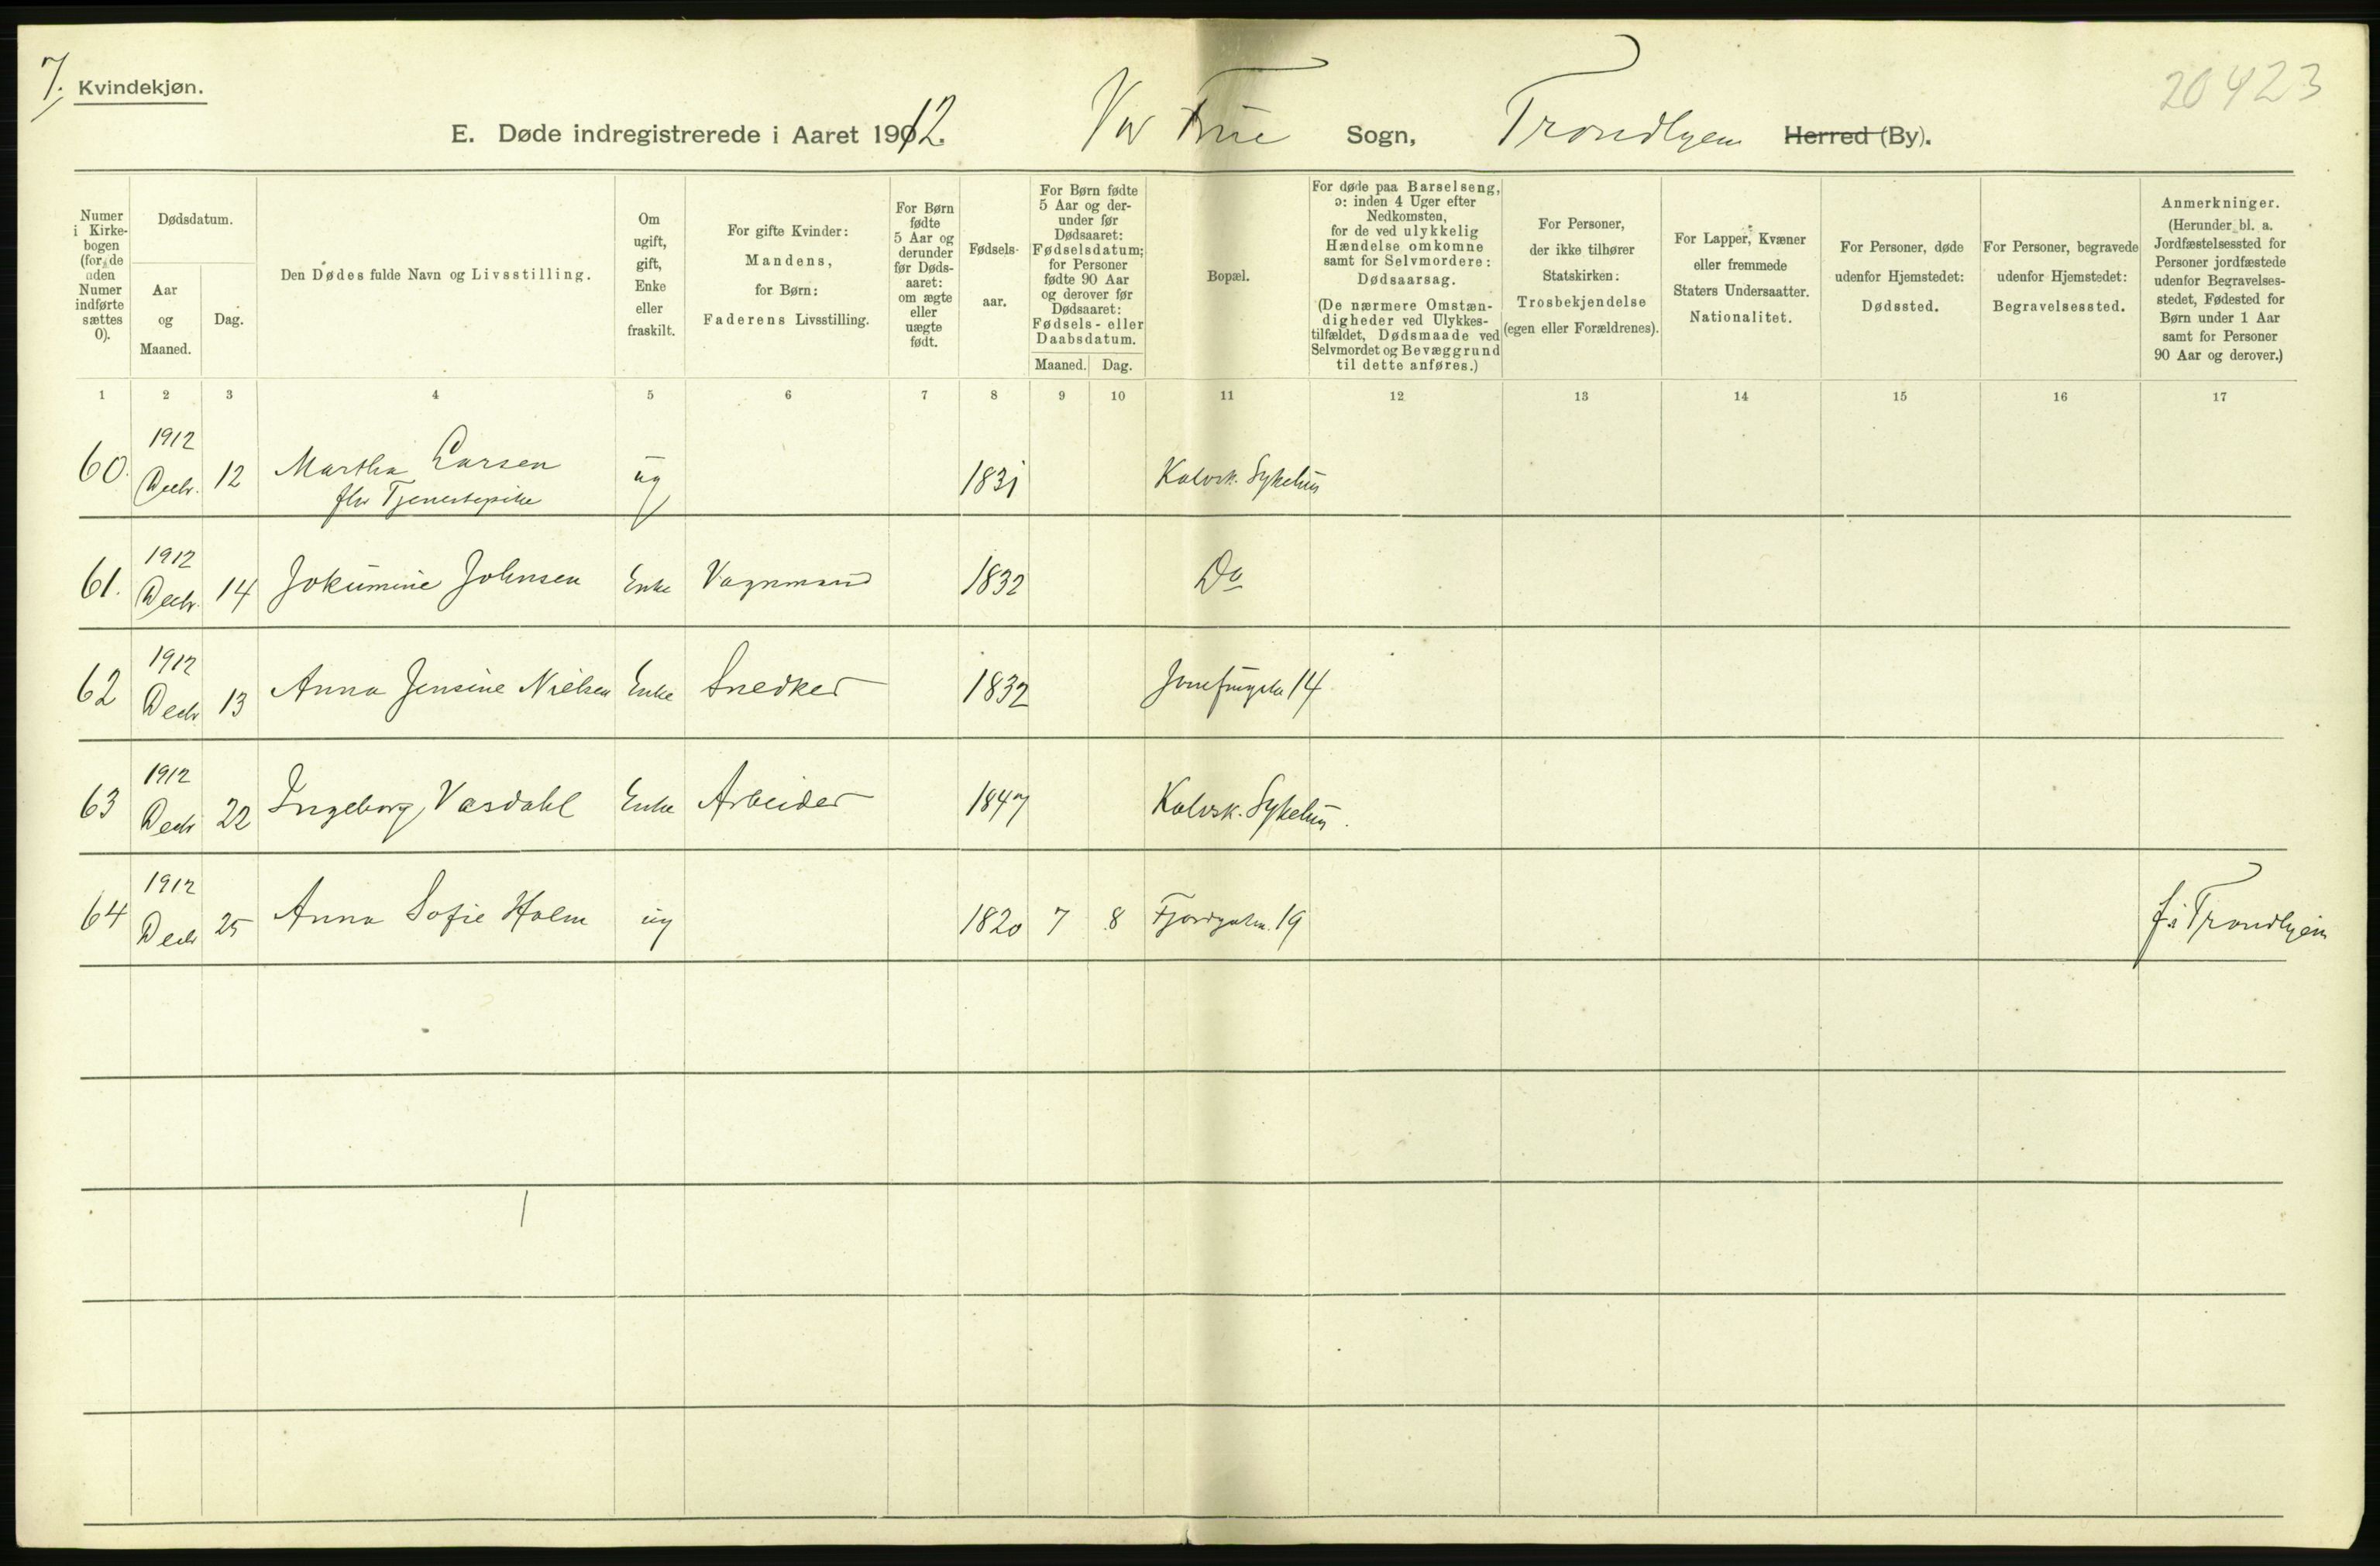 7.
Kvindekjøn.
20423
E. Døde indregistrerede i Aaret 1912. Vor Frue Sogn, Trondhjem Herred (By).
Numer
i Kirke-
bogen
(for de
uden
Numer
indførte
sættes
0).
Dødsdatum.
Aar
og
Maaned.
Dag.
Den Dødes fulde Navn og Livsstilling.
Om
ugift,
gift,
Enke
eller
fraskilt.
For gifte Kvinder:
Mandens,
for Børn:
Faderens Livsstilling.
For Børn
fødte
5 Aar og
derunder
før Døds-
aaret:
om ægte
eller
uægte
født.
Fødsels-
aar.
For Børn fødte
5 Aar og der-
under før
Dødsaaret:
Fødselsdatum;
for Personer
fødte 90 Aar
og derover før
Dødsaaret:
Fødsels- eller
Daabsdatum.
Maaned. Dag.
Bopæl.
For døde paa Barselseng,
ɔ: inden 4 Uger efter
Nedkomsten,
for de ved ulykkelig
Hændelse omkomne
samt for Selvmordere:
Dødsaarsag.
(De nærmere Omstæn-
digheder ved Ulykkes-
tilfældet, Dødsmaade ved
Selvmordet og Bevæggrund
til dette anføres.)
For Personer,
der ikke tilhører
Statskirken:
Trosbekjendelse
(egen eller Forældrenes).
For Lapper, Kvæner
eller fremmede
Staters Undersaatter.
Nationalitet.
For Personer, døde
udenfor Hjemstedet:
Dødssted.
For Personer, begravede
udenfor Hjemstedet:
Begravelsessted.
Anmerkninger.
(Herunder bl. a.
Jordfæstelsessted for
Personer jordfæstede
udenfor Begravelses-
stedet, Fødested for
Børn under 1 Aar
samt for Personer
90 Aar og derover.)
1 2 3 4 5 6 7 8 9 10 11 12 13 14 15 16 17
1912
60. Decbr. 12 Martha Larsen ug 1831 Kalvsk. Sykehus
fhv Tjenestepike
1912
61. Decbr. 14 Jokumine Johnsen Enke Vognmand 1832 Do
1912
62 Decbr 13 Anna Jensine Nielsen Enke Snedker 1832 14
1912
63 Decbr 22 Ingeborg Vasdahl Enke Arbeider 1847 Kalvsk. Sykehus.
1912
64 Decbr 25 Anna Sofie Holm ug 1820 7 8 Fjordgaten. 19 f. i Trondhjem